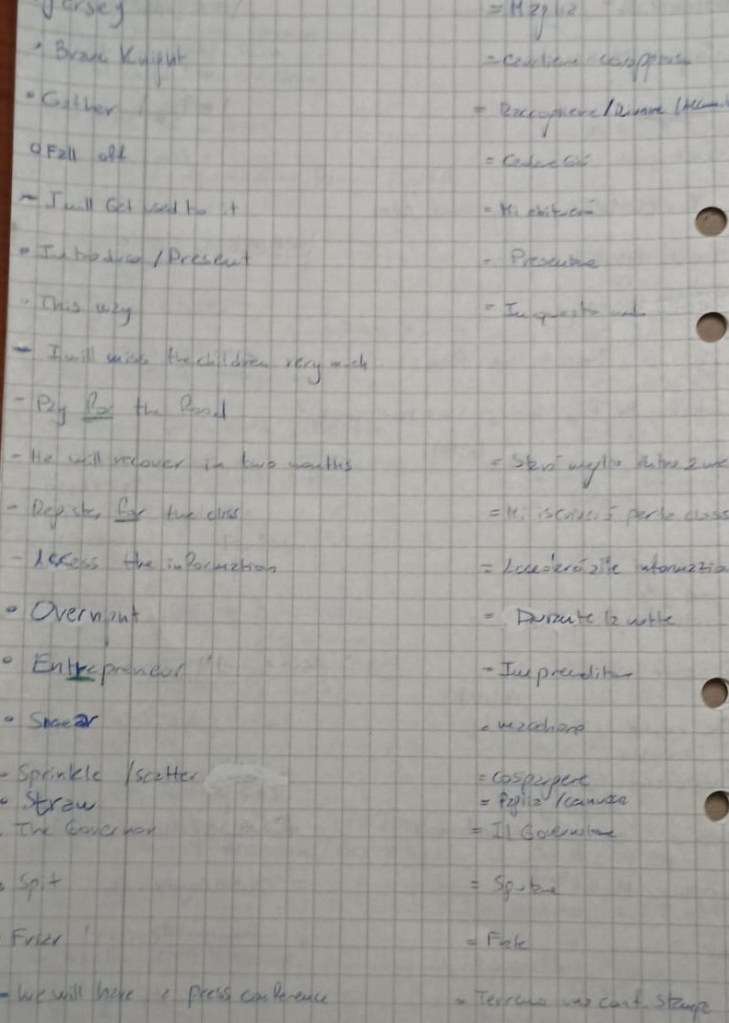 Jersey = Maglia
• Brave Knight = Cavaliere
• Gather = /
• Fall off =
- I will Get used to it - Mi
• Introduce / Present - Presentare
- This way = In questo
- I will miss the children very much
- Pay For the Food
- He will recover in two months = Starà meglio 2
- Register for the class = Mi iscriverò per la class
- Access the information =
• Overnight = Durante la notte
• Entrepreneur - Imprenditore
• Smear -
- Sprinkle / scatter = cospargere
• Straw = Paglia / cannuccia
- The Governor = Il Governatore
• Spit = Sputare
Friar = Frate
- We will have a press conference = Terremo una conf. stampa